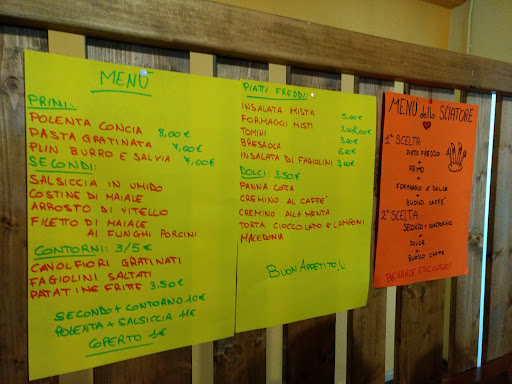 MENÙ
PRIMI:
POLENTA CONCIA 8,00€
PASTA GRATINATA 7,00€
PLIN BURRO E SALVIA 7,00€
SECONDI:
SALSICCIA IN UMIDO
COSTINE DI MAIALE
ARROSTO DI VITELLO
FILETTO DI MAIALE
AI FUNGHI PORCINI
CONTORNI: 3/5€
CAVOLFIORI GRATINATI
FAGIOLINI SALTATI
PATATINE FRITTE 3,50€
SECONDO + CONTORNO 10€
POLENTA + SALSICCIA 11€
COPERTO 1€
PIATTI FREDDI:
INSALATA MISTA
FORMAGGI MISTI 5,00€
TOMINI
BRESAOLA
INSALATA DI FAGIOLINI 3,00€
DOLCI: 3,50€
PANNA COTTA
CREMINO AL CAFFE'
CREMINO ALLA MENTA
TORTA CIOCCOLATO E LAMPONI
MACEDONIA
BUON APPETITO!
MENÙ dello SCIATORE
1° SCELTA
PIATTO FREDDO
+
PRIMO
+
FORMAGGIO O DOLCE
+
BUONO CAFFE'
2° SCELTA
SECONDO + CONTORNO
+
DOLCE
+
BUONO CAFFE'
BEVANDE ESCLUSE!